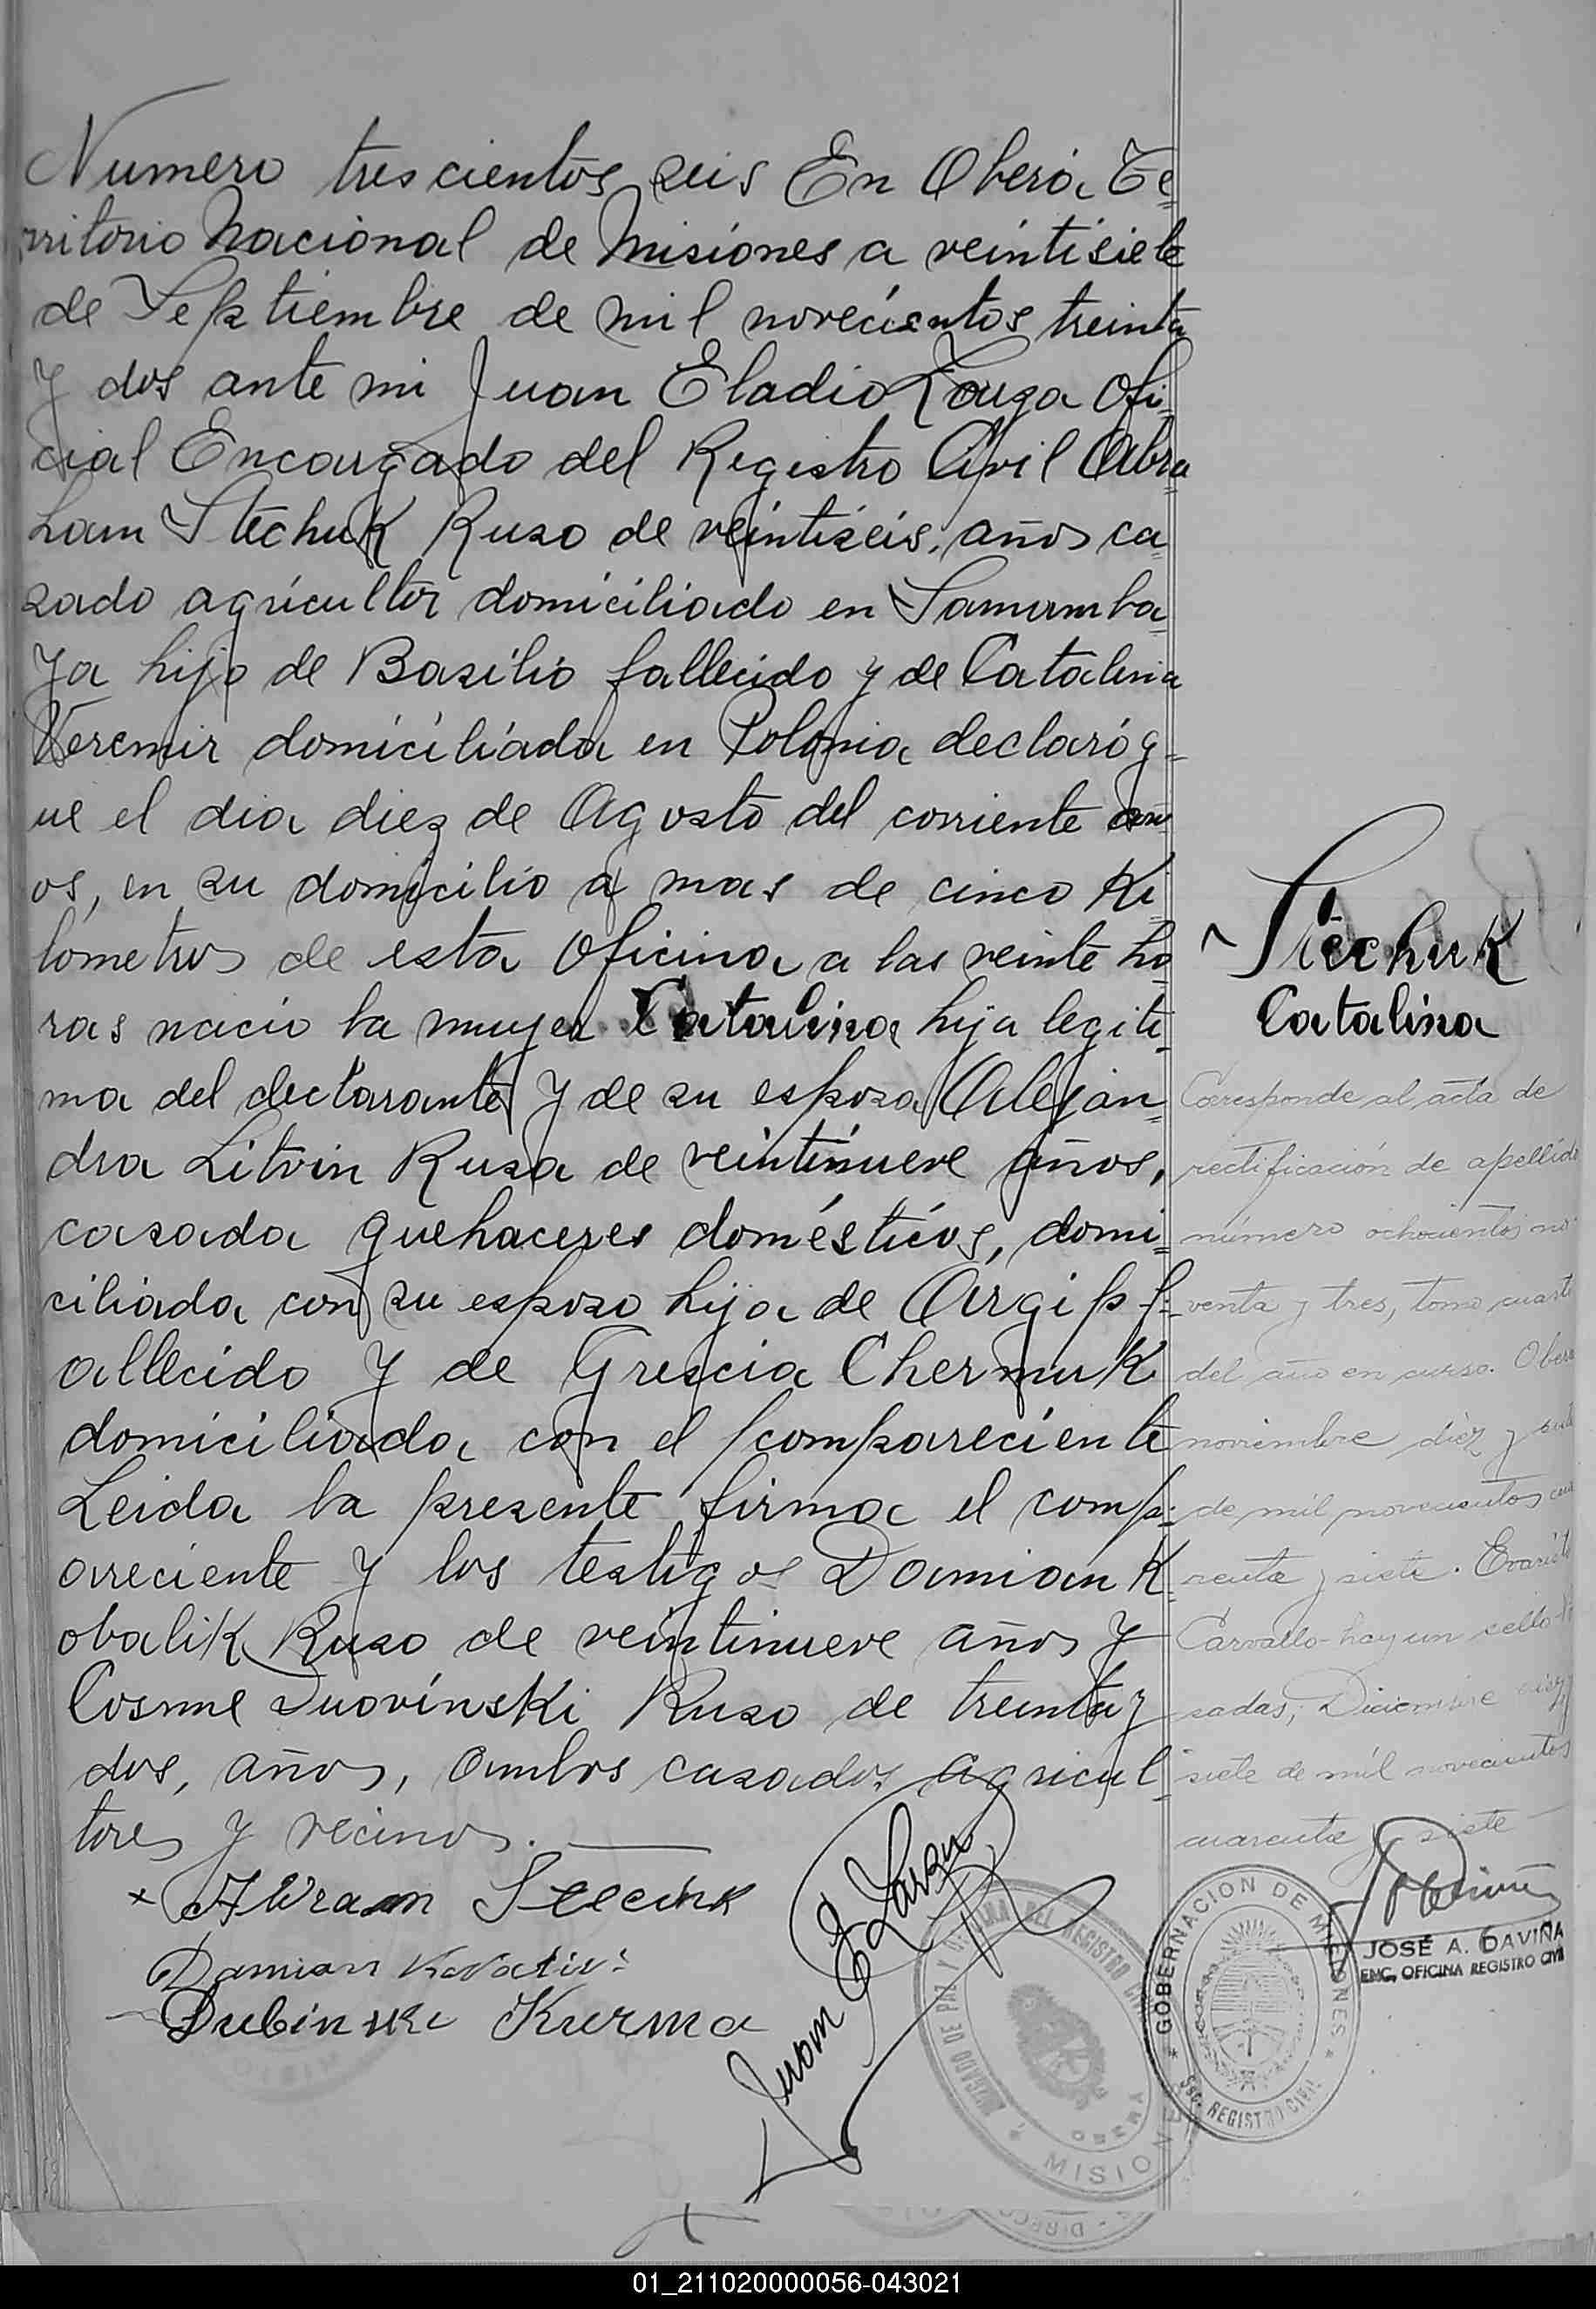 Numero trescientos seis En Oberá Te=
rritorio Nacional de Misiones a veintisiete
de Septiembre de mil novecientos treinta
y dos ante mi Juan Eladio Ofi=
cial Encargado del Registro Civil Abra
ham Stechuk Ruso de veintiseis, años ca=
sado agricultor domiciliado en Samamba
ya hijo de Basilio fallecido y de Catalina
Veremir domiciliada en Polonia declaró q=
ue el dia diez de Agosto del corriente añ
os, en su domicilio a mas de cinco Ki=
lometros de esta Oficina a las veinte ho
ras nacio la mujer Catalina hija legiti=
ma del declarante y de su esposa Alejan=
dra Litvin Rusa de veintinueve años,
casada quehaceres domésticos, domi=
ciliada con su esposo hija de Argip f=
allecido y de Grescia Chermuk
domiciliada con el compareciente
Leida la presente firma el comp=
areciente y los testigos Damian K=
obalik Ruso de veintinueve años y
Cosme Duovinski Ruso de treinta y
dos, años, ambos casados agricul=
tores y vecinos.
x Awram
Damian
Dubinski Kurma
Juan E
Stechuk
Catalina
Corresponde al acta de
rectificación de apellido
número ochocientos no-
venta y tres, tomo cuarto
del año en curso. Oberá
noviembre diez y siete
de mil novecientos cua
renta y siete. Evaristo
Carvallo - hay un sello - Po
sadas, Diciembre diez y
siete de mil novecientos
cuarenta y siete
JUZGADO DE PAZ Y DEL REGISTRO CIVIL
OBERA
MISIONES
GOBERNACION DE MISIONES
Sec. REGISTRO CIVIL
JOSÉ A. DAVIÑA
ENC. OFICINA REGISTRO CIVIL
01_211020000056-043021